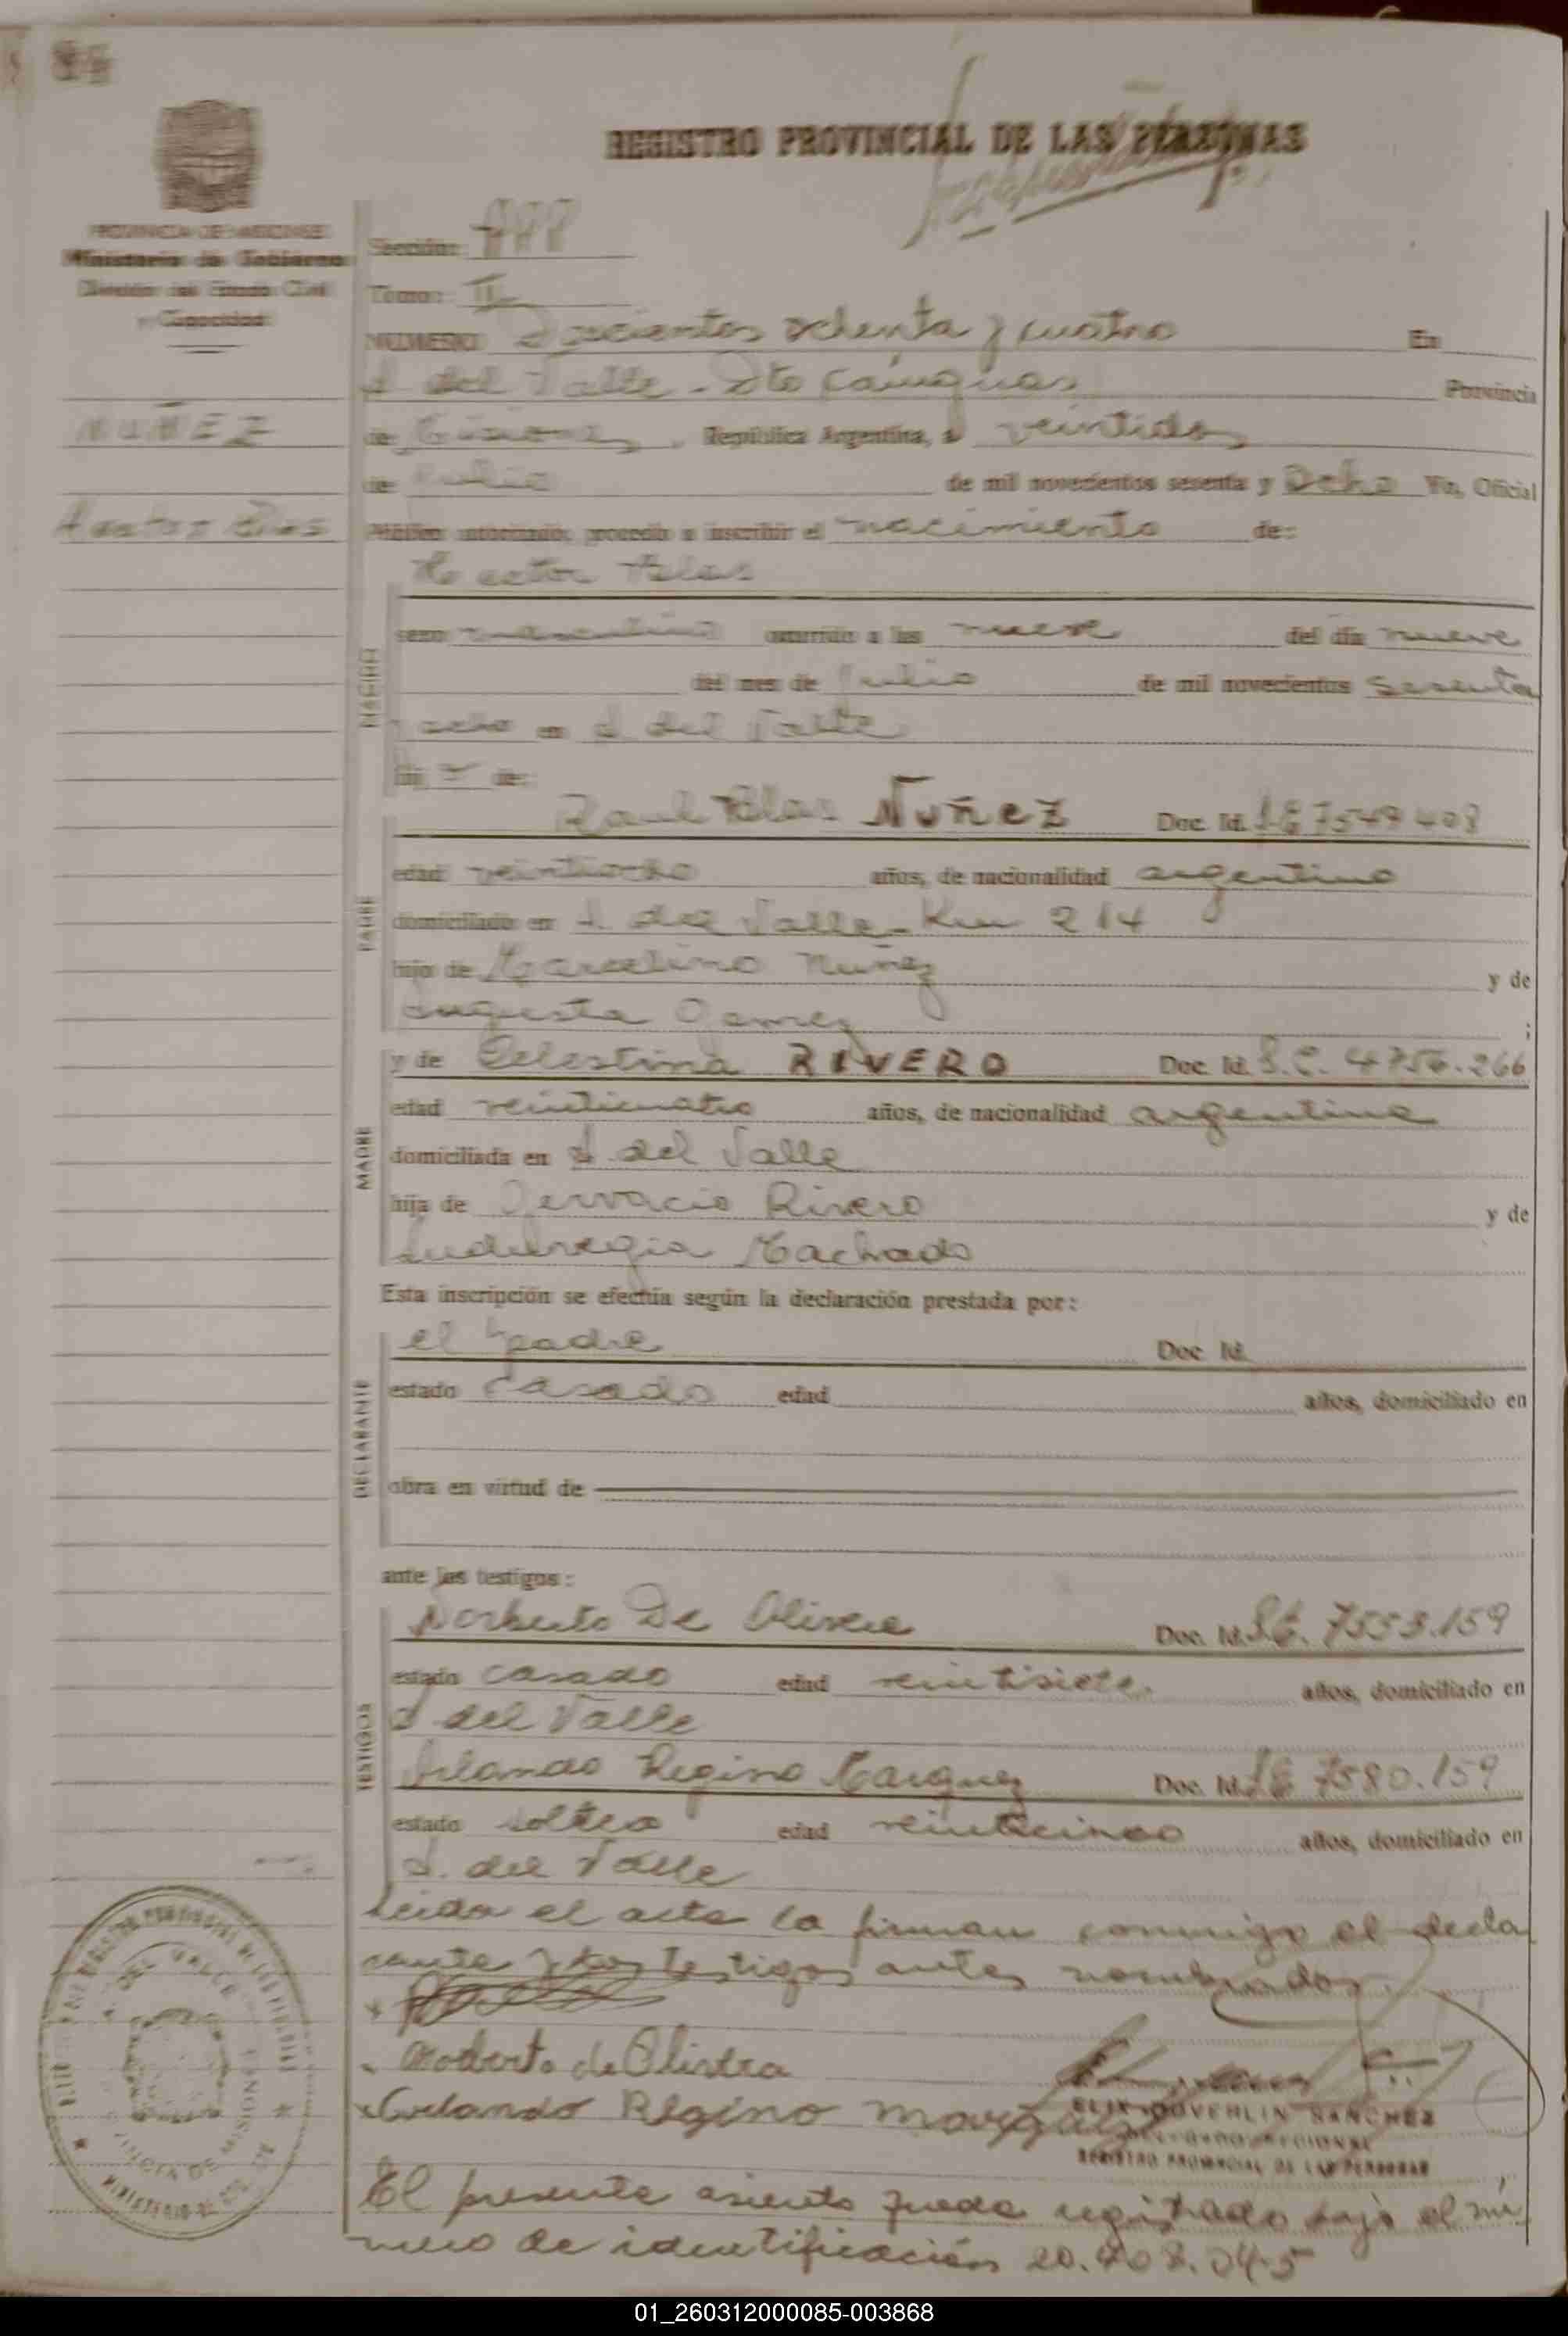 284
REGISTRO PROVINCIAL DE LAS PERSONAS
PROVINCIA DE MISIONES
Ministerio de Gobierno
Dirección del Estado Civil
y Capacidad
Sección:
Tomo: II
NUMERO Doscientos ochenta y cuatro En
A. del Valle - Dto Cainguas Provincia
NUÑEZ
de Misiones, República Argentina, a veintidos
de Julio de mil novecientos sesenta y Ocho Yo, Oficial
Hector Blas
Público autorizado, procedo a inscribir el nacimiento de:
Hector Blas
NACIDO
sexo masculino ocurrido a las nueve del día nueve
del mes de Julio de mil novecientos sesenta
y ocho en A. del Valle
hijo de:
PADRE
Raul Blas NUÑEZ Doc. Id. 7549408
edad veintiocho años, de nacionalidad argentino
domiciliado en A. del Valle - Km 214
hijo de Marcelino Nuñez y de
Augusta Gomez ;
MADRE
y de Celestina RIVERO Doc. Id. L.C. 4756.266
edad veinticuatro años, de nacionalidad argentina
domiciliada en A. del Valle
hija de Gervacio Rivero y de
Machado
Esta inscripción se efectúa según la declaración prestada por:
DECLARANTE
el padre Doc. Id.
estado casado edad años, domiciliado en
obra en virtud de
ante los testigos:
TESTIGOS
Norberto De Olivera Doc. Id. LE. 7553.159
estado casado edad veintisiete años, domiciliado en
A. del Valle
Orlando Regino Marquez Doc. Id. LE 7580.159
estado soltero edad veinticinco años, domiciliado en
A. del Valle
Leida el acta la firman conmigo el decla
rante y los testigos antes nombrados.
Norberto de Olivera
Orlando Regino Marquez
SANCHEZ
DELEGADO REGIONAL
REGISTRO PROVINCIAL DE LAS PERSONAS
El presente asiento queda registrado bajo el nú
mero de identificación 20.408.045
01_260312000085-003868